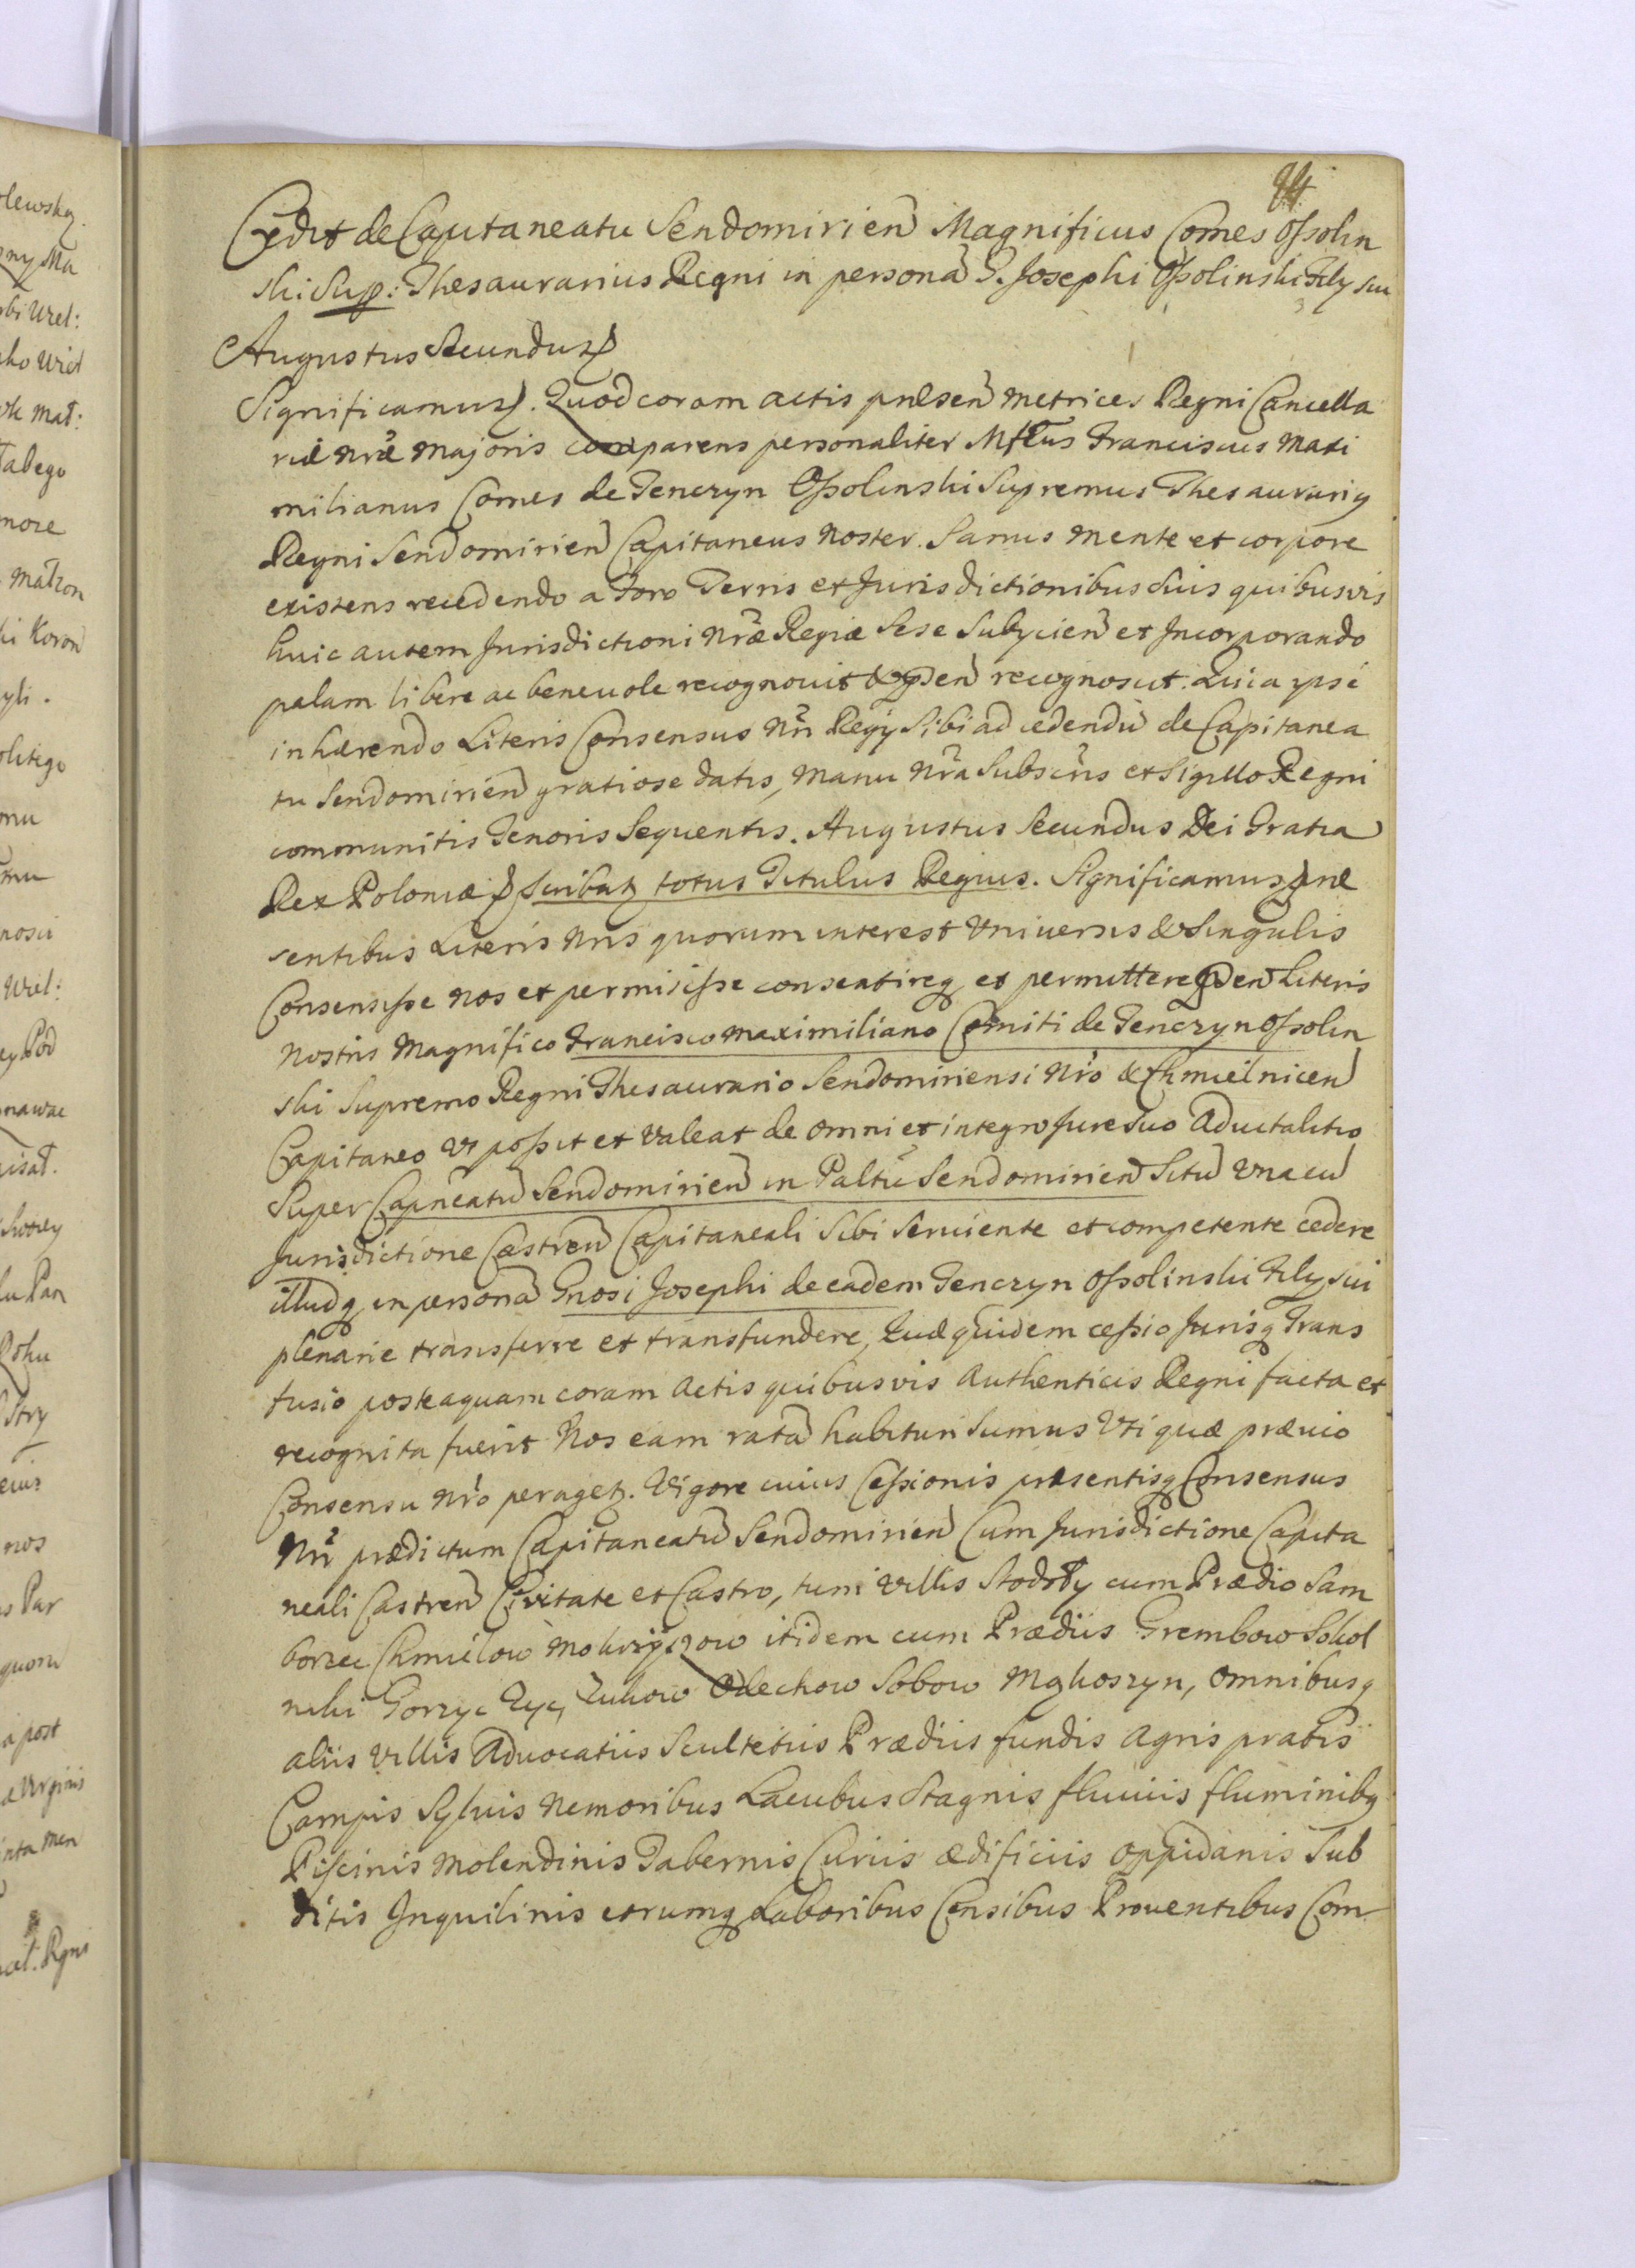 84
Cedit de Capitaneatu Sendomirien Magnificus Comes Ossolin
ski Sup: Thesaurarius Regni in persona G. Josephi Ossolinski Filij sui
Augustus Secundus
Significamus. Quod coram actis pnlsen Metrices Regni Cancella
riæ nræ Majoris comparens personaliter Mflcus Franciscus Maxi
milianus Comes de Tenczyn Ossolinski Supremus Thesaurariq
Regni Sendomirien Capitaneus Noster. Sanus mente et corpore
existens recedendo a Foro Terris et Jurisdictionibus Suis quibusvis
huic autem Jurisdictioni Nræ Regiæ Sese Subycien et Incorporando
palam libere ac beneuole recognouit & pden recognoscit. Quia ipse
inhærendo Literis Consensus Nri Regij Sibi ad cedendū de Capitanea
tu Sendomirien gratiose datis, manu Nra Subscris et Sigillo Regni
communitis Tenoris Sequentis. Augustus Secundus Dei Gratia
Rex Poloniæ Scribatz totus Titulus Regius. Significamus pnl
sentibus Literis Nris quorum interest Vniuersis & Singulis
Consensisse nos et permisisse consentireq et permittere pden Literis
nostris Magnifico Francisco Maximiliano Comiti de Tenczyn Ossolin
ski Supremo Regni Thesaurario Sendomiriensi Nro & Chmielnicen
Capitaneo Vt possit et Valeat de omni et integro Jure Suo Aduitalitio
Super Capneatū Sendomirien in Paltu Sendomirien Sitū Vnacū
Jurisdictione Castren Capitaneali Sibi Seruiente et competente cedere
illudq in persona Gnosi Josephi de eadem Tenczyn Ossolinski Filij sui
plenarie transferre et transfundere, Quæ quidem cessio Jurisq Trans
fusio posteaquam coram Actis quibusvis Authenticis Regni facta et
recognita fuerit Nos eam ratā habituri Sumus Vti quæ præuio
Consensu Nro peragetz. Vigore cuius Cessionis præsentisq Consensus
Nri prædictum Capitaneatū Sendomirien Cum Jurisdictione Capita
neali Castren Civitate et Castro, tum Villis Stodoły cum Prædio Sam
borzec Chmielow Mokrzyszow itidem cum Prædiis Grembow Sokol
niki Gorzyc Zyc, Zukow Odechow Sobow Mokoszyn, Omnibusq
aliis Villis Advocatiis Scultetiis Prædiis fundis Agris pratis
Campis Syluis Nemoribus Lacubus Stagnis fluuiis fluminibq
Piscinis Molendinis Tabernis Curiis ædificiis Oppidanis Sub
ditis Inquilinis eorumq Laboribus Censibus Prouentibus Com